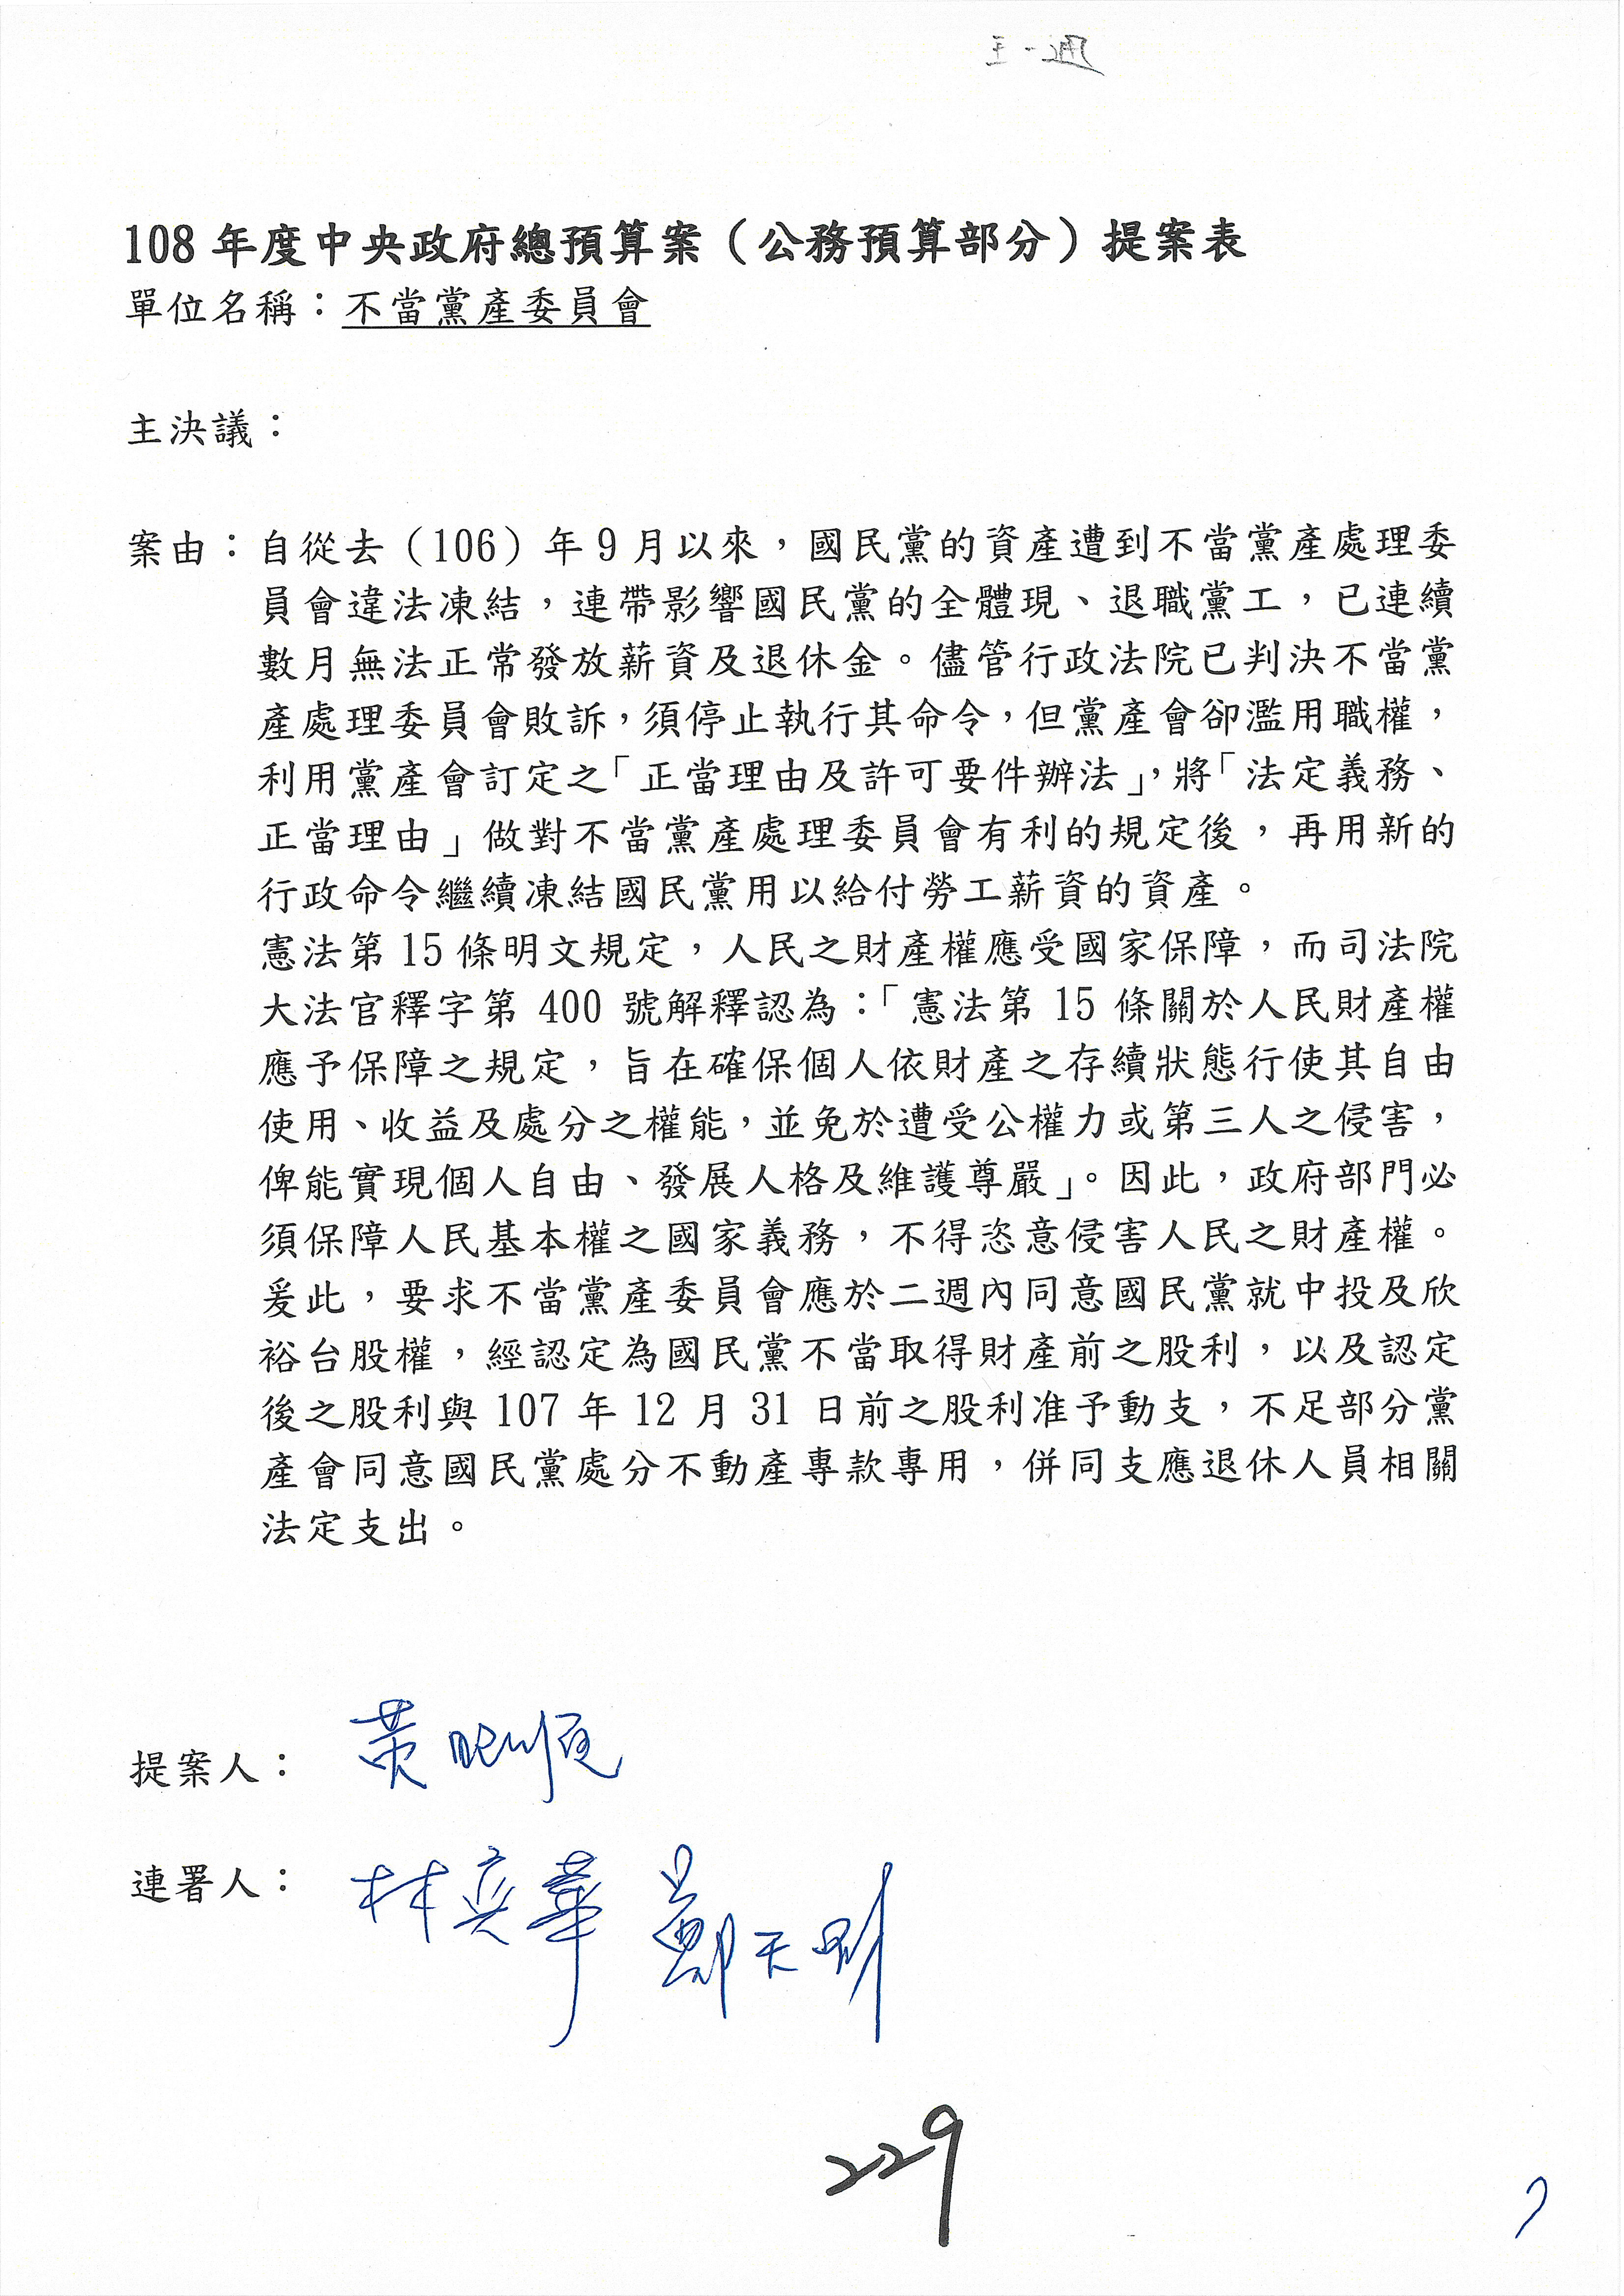 108年度中央政府總預算案（公務預算部分）提案表
單位名稱：不當黨產委員會
主決議：
案由：自從去（106）年9月以來，國民黨的資產遭到不當黨產處理委
員會違法凍結，連帶影響國民黨的全體現、退職黨工，已連續
數月無法正常發放薪資及退休金。儘管行政法院已判決不當黨
產處理委員會敗訴，須停止執行其命令，但黨產會卻濫用職權，
利用黨產會訂定之「正當理由及許可要件辦法」，將「法定義務、
正當理由」做對不當黨產處理委員會有利的規定後，再用新的
行政命令繼續凍結國民黨用以給付勞工薪資的資產。
憲法第15條明文規定，人民之財產權應受國家保障，而司法院
大法官釋字第400號解釋認為：「憲法第15條關於人民財產權
應予保障之規定，旨在確保個人依財產之存續狀態行使其自由
使用、收益及處分之權能，並免於遭受公權力或第三人之侵害，
俾能實現個人自由、發展人格及維護尊嚴」。因此，政府部門必
須保障人民基本權之國家義務，不得恣意侵害人民之財產權。
爰此，要求不當黨產委員會應於二週內同意國民黨就中投及欣
裕台股權，經認定為國民黨不當取得財產前之股利，以及認定
後之股利與107年12月31日前之股利准予動支，不足部分黨
產會同意國民黨處分不動產專款專用，併同支應退休人員相關
法定支出。
提案人：黃昭順
連署人：林奕華 鄭天財
229